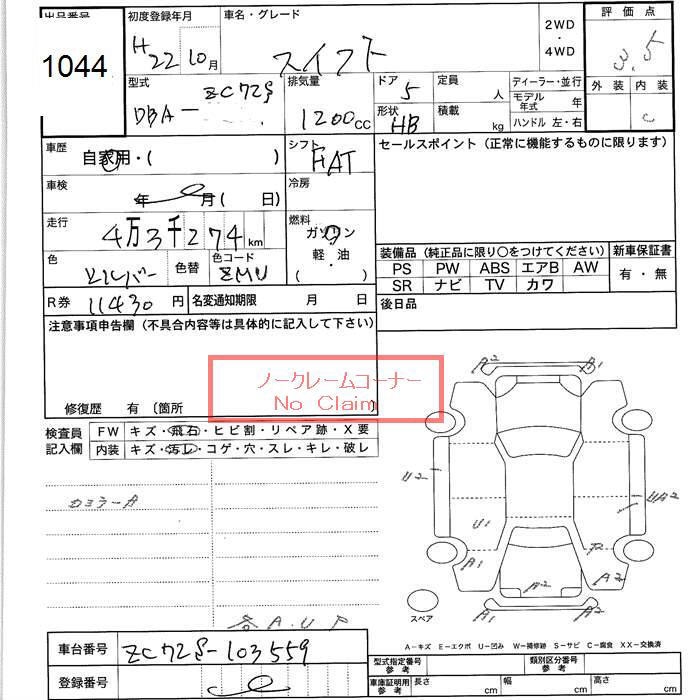 出品番号 初度登録年月 車名・グレード 2WD・4WD 評価点
1044 H22 10月 スイフト 3.5
型式 排気量 ドア 定員 ディーラー・並行 外装 内装
DBA- ZC72S 1200cc 5 人 モデル年式 年 C
形状 積載 ハンドル 左・右
HB kg
車歴 自家用・( ) シフト FAT セールスポイント (正常に機能するものに限ります)
車検 年 月 ( 日) 冷房
走行 4万3千274km 燃料 ガソリン
軽・油
色 シルバー 色替 色コード ZMU ( )
装備品 (純正品に限り○をつけてください) 新車保証書
PS PW ABS エアB AW 有・無
SR ナビ TV カワ
R券 11430 円 名変通知期限 月 日 後日品
注意事項申告欄 (不具合内容等は具体的に記入して下さい)
ノークレームコーナー
No Claim
修復歴 有 (箇所 )
検査員記入欄 FW キズ・飛石・ヒビ割・リペア跡・X要
内装 キズ・汚レ・コゲ・穴・スレ・キレ・破レ
A2 A1
U2 UA2
U1
A1 A2 A2
A1 A2
スペア
A-キズ E-エクボ U-凹み W-補修跡 S-サビ C-腐食 XX-交換済
車台番号 ZC72S-103559
登録番号
型式指定番号 参考 類別区分番号 参考
車庫証明用 参考 長さ cm 幅 cm 高さ cm